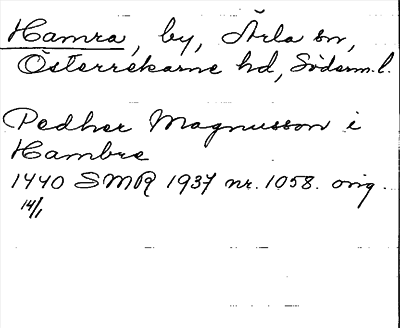 Hamra, by, Ärla sn,
Österrekarne hd, Söderm.l.
Pedher Magnusson i
Hambre
1440 SMR 1937 nr. 1058. orig.
14/1